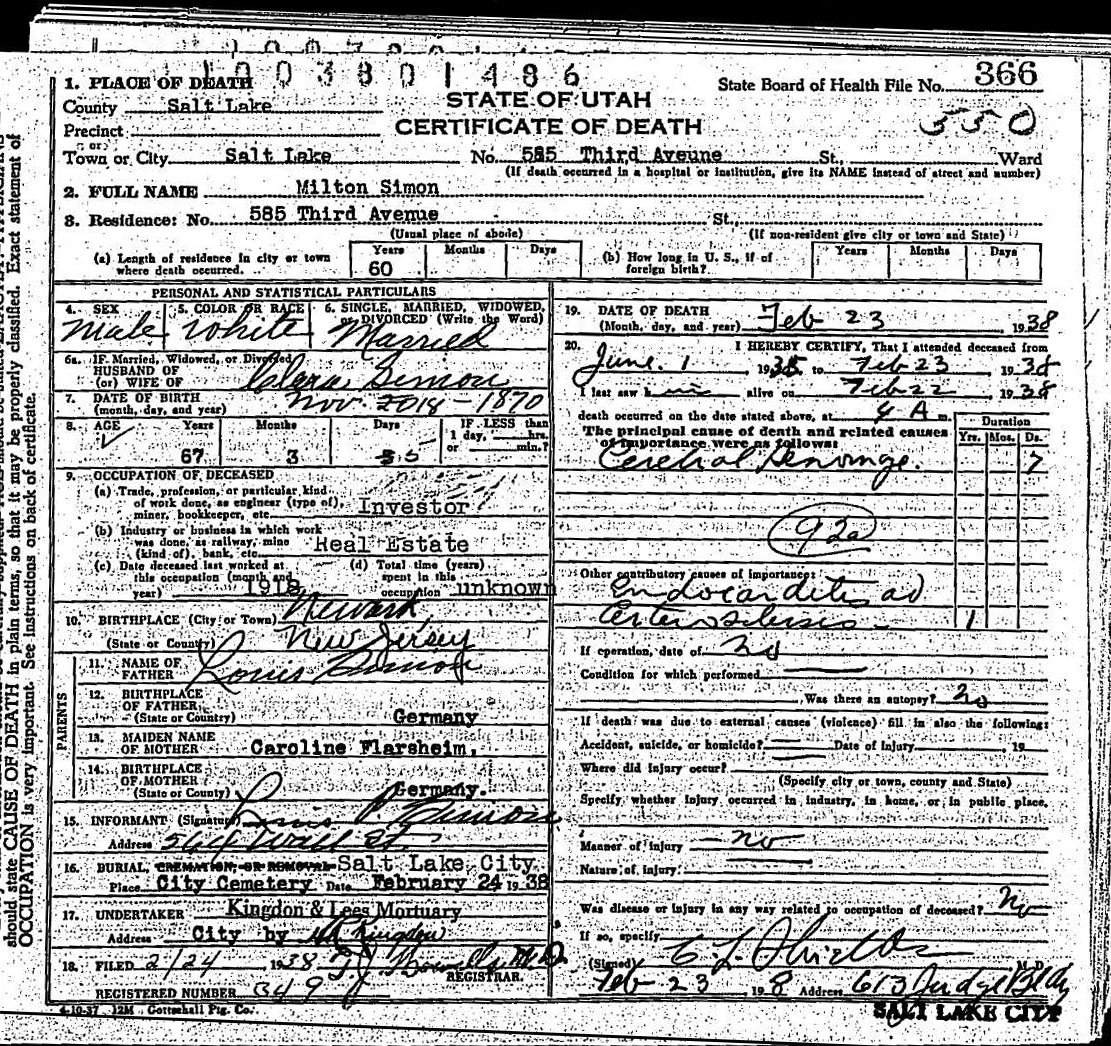 1003801486
1. PLACE OF DEATH
State Board of Health File No. 366
County Salt Lake
STATE OF UTAH
550
Precinct
CERTIFICATE OF DEATH
or
Town or City Salt Lake No. 585 Third Aveune St. Ward
(If death occurred in a hospital or institution, give its NAME instead of street and number)
2. FULL NAME Milton Simon
3. Residence: No. 585 Third Avenue St.
(Usual place of abode) (If non-resident give city or town and State)
(a) Length of residence in city or town where death occurred. Years 60 Months Days
(b) How long in U. S., if of foreign birth? Years Months Days
PERSONAL AND STATISTICAL PARTICULARS
4. SEX Male
5. COLOR OR RACE White
6. SINGLE, MARRIED, WIDOWED, or DIVORCED (Write the Word) Married
6a. IF Married, Widowed, or Divorced
HUSBAND OF
(or) WIFE OF Clara Simon
7. DATE OF BIRTH
(month, day, and year) Nov. 2018 - 1870
8. AGE Years 67 Months 3 Days 5
IF LESS than 1 day, hrs. or min.?
9. OCCUPATION OF DECEASED
(a) Trade, profession, or particular kind
of work done, as engineer (type of),
miner, bookkeeper, etc. Investor
(b) Industry or business in which work
was done, as railway, mine
(kind of), bank, etc. Real Estate
(c) Date deceased last worked at
this occupation (month and
year) 1918
(d) Total time (years)
spent in this
occupation unknown
10. BIRTHPLACE (City or Town) Newark
(State or County) New Jersey
PARENTS
11. NAME OF
FATHER Louis Simon
12. BIRTHPLACE
OF FATHER
(State or Country) Germany
13. MAIDEN NAME
OF MOTHER Caroline Flarsheim,
14. BIRTHPLACE
OF MOTHER
(State or County) Germany.
15. INFORMANT (Signature) Louis Simon
Address 564 Wall St.
16. BURIAL, CREMATION, OR REMOVAL Salt Lake City
Place City Cemetery Date February 24 1938
17. UNDERTAKER Kingdon & Lees Mortuary
Address City by Kingdon
18. FILED 2/24 1938
REGISTRAR.
REGISTERED NUMBER 349
4-10-37 12M Gottschall Ptg. Co.
19. DATE OF DEATH
(Month, day, and year) Feb 23 1938
20. I HEREBY CERTIFY, That I attended deceased from
June 1 1935 to Feb 23 1938
I last saw him alive on Feb 22 1938
death occurred on the date stated above, at 4 A m.
The principal cause of death and related causes
of importance were as follows:
Duration
Yrs. Mos. Ds.
Cerebral Hemorrage. 7
92a
Other contributory causes of importance:
Endocarditis ad
Arterosclersis - 1
If operation, date of no
Condition for which performed
Was there an autopsy? no
If death was due to external causes (violence) fill in also the following:
Accident, suicide, or homicide? Date of Injury 19
Where did injury occur?
(Specify city or town, county and State)
Specify whether injury occurred in industry, in home, or in public place.
Manner of injury no
Nature of injury
Was disease or injury in any way related to occupation of deceased? No
If so, specify
(Signed) M. D.
Feb 23 1938 Address 613 Judge Bldg
SALT LAKE CITY
should state CAUSE OF DEATH in plain terms, so that it may be properly classified. Exact statement of
OCCUPATION is very important. See instructions on back of certificate.